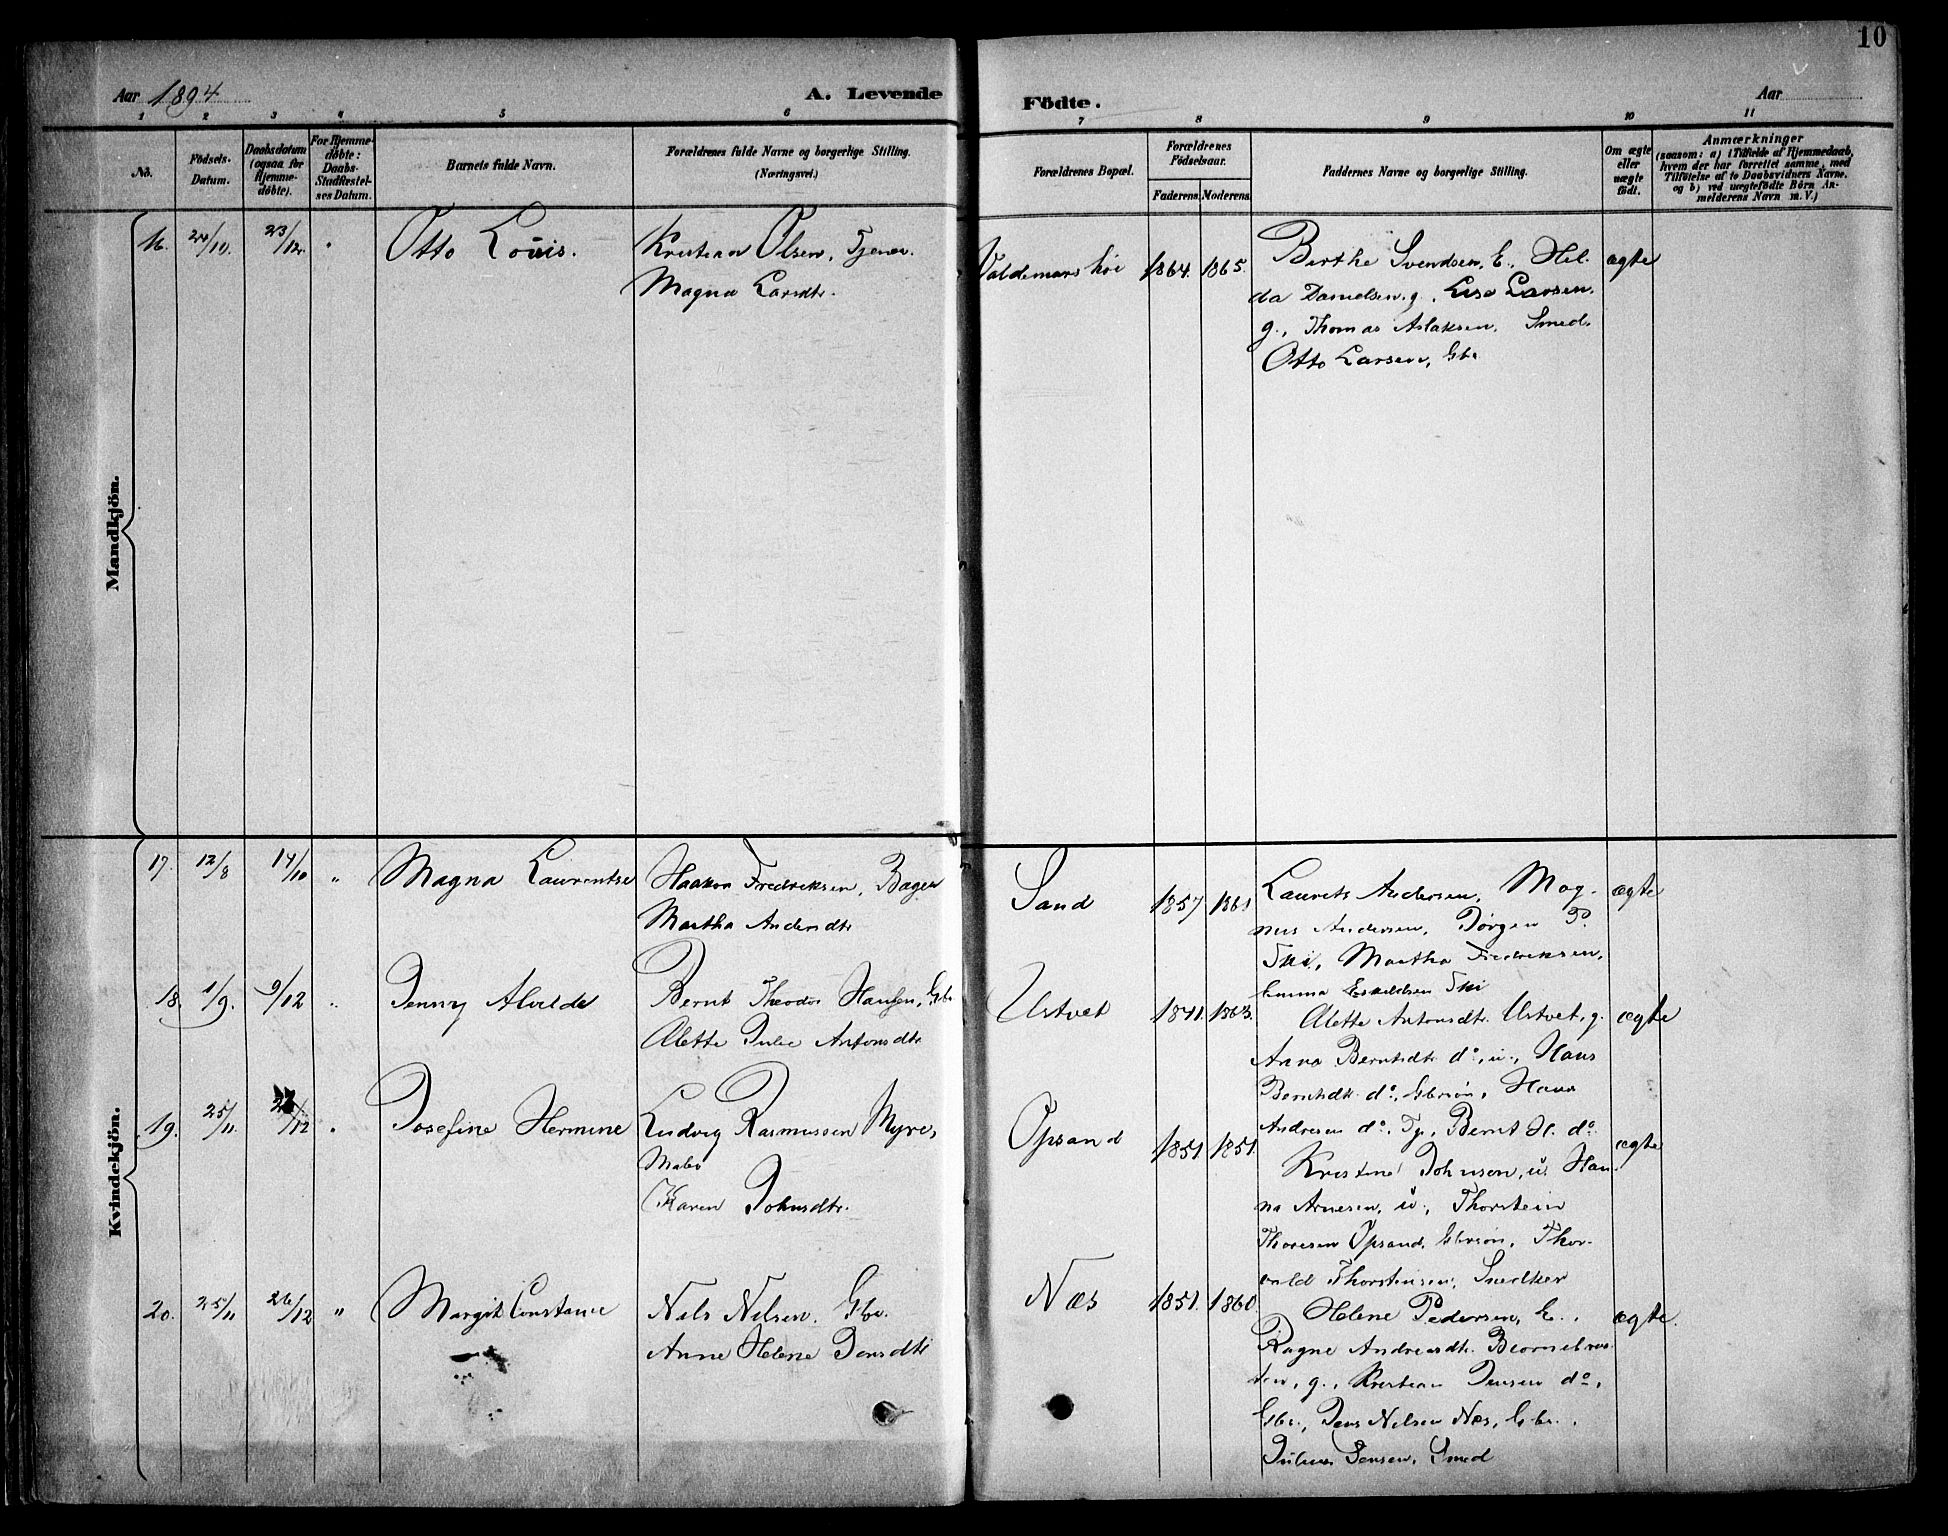 10
Aar 1894
A. Levende Födte.
Aar
1 2 3 4 5 6 7 8 9 10 11
No.
Födsels-
Datum.
Daabsdatum
(ogsaa for
Hjemme-
döbte).
For Hjemme-
döbte:
Daabs-
Stadfæstel-
ses Datum.
Barnets fulde Navn.
Forældrenes fulde Navne og borgerlige Stilling.
(Næringsvei.)
Forældrenes Bopæl.
Forældrenes
Födselsaar.
Faderens. Moderens.
Faddernes Navne og borgerlige Stilling.
Om ægte
eller
uægte
födt.
Anmærkninger
(saasom: a) i Tilfælde af Hjemmedaab,
hvem der har forrettet samme, med
Tilföielse af to Daabsvidners Navne.
og b) ved uægtefödte Börn An-
melderens Navn m. V.)
Mandkjön.
16. 20/10. 23/12. Otto Louis. Kristian Olsen, Tjener.
Magna Larsdtr.
Valdemarshöi 1864. 1865.
Birthe Svendsen, E., Hil-
da Danielsen, g., Lise Larsen,
g., Thomas Aslaksen, Smed,
Otto Larsen, Gbr.
ægte
Kvindekjön.
17. 12/8 14/10 " Magna Laurentse Haakon Fredriksen, Bager
Martha Andersdtr
Sand 1857 1861
Laurets Andersen, Mag-
nus Andersen, Jørgen P.
Ski, Martha Fredriksen,
Emma Eskildsen Ski
ægte
18. 1/9. 9/12 " Jenny Alvilde Bernt Theodor Hansen, Gbr
Alette Julie Antonsdtr
Ustvet 1841. 1863.
Alette Antonsdtr. Ustvet, g.
Anna Berntsdtr do, u., Hans
Berntsdtr. do, Gbrsøn, Hans
Andresen do, Tj., Bernt H. do
ægte
19. 25/11. 26/12 " Josefine Hermine Ludvig Rasmussen Myre,
Maler
Karen Johnsdtr.
Opsand 1851. 1851.
Kristine Johnson, u. Han-
na Arnesen, u., Thorstein
Thoresen Opsand, Gbrsön, Thor-
vald Thorstensen, Snedker
ægte
20. 25/11 26/12 " Margit Constance Nils Nilsen, Gbr.
Anne Helene Jensdtr
Næs 1851. 1860.
Helene Pedersen, E.,
Ragne Andreasdtr. Bjornebraa-
ten, g., Kristian Jensen do,
Gbr., Jens Nilsen Næs, Gbr.,
Julius Jensen, Smed
ægte.